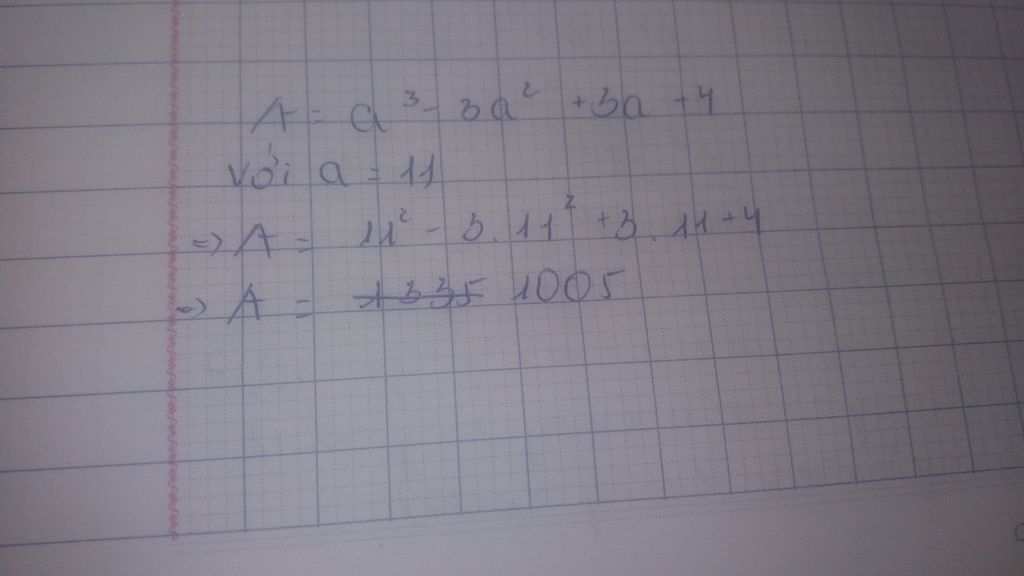 A = a³ - 3a² + 3a + 4
với a = 11
=> A = 11² - 3.11² + 3.11 + 4
=> A = 1335 1005